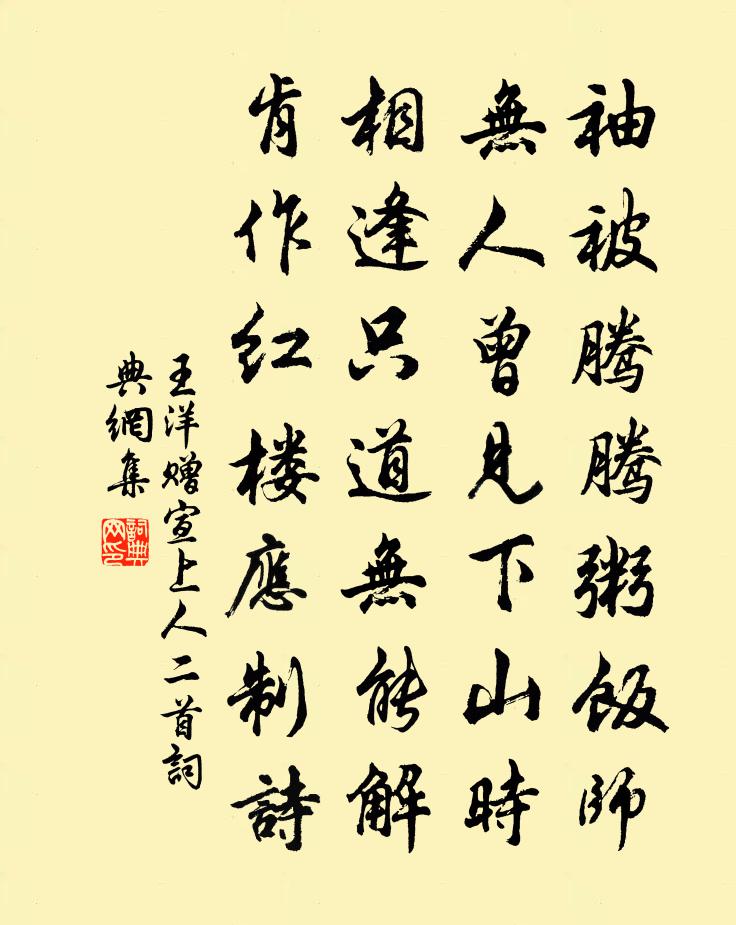 袖被騰騰粥飯師
無人曾見下山時
相逢只道無能解
肯作红楼應制詩
王洋赠宣上人二首詞
典網集
詞典网印